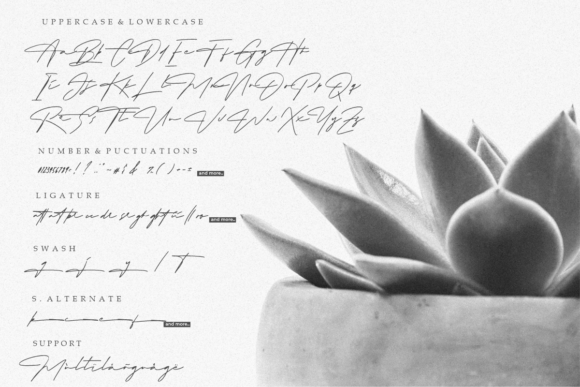 UPPERCASE & LOWERCASE
Aa Bb Cc Dd Ee Ff Gg Hh
Ii Jj Kk Ll Mm Nn Oo Pp Qq
Rr Ss Tt Uu Vv Ww Xx Yy Zz
NUMBER & PUCTUATIONS
0123456789 ! ?
and more..
LIGATURE
and more..
SWASH
S. ALTERNATE
and more..
SUPPORT
Multilanguage